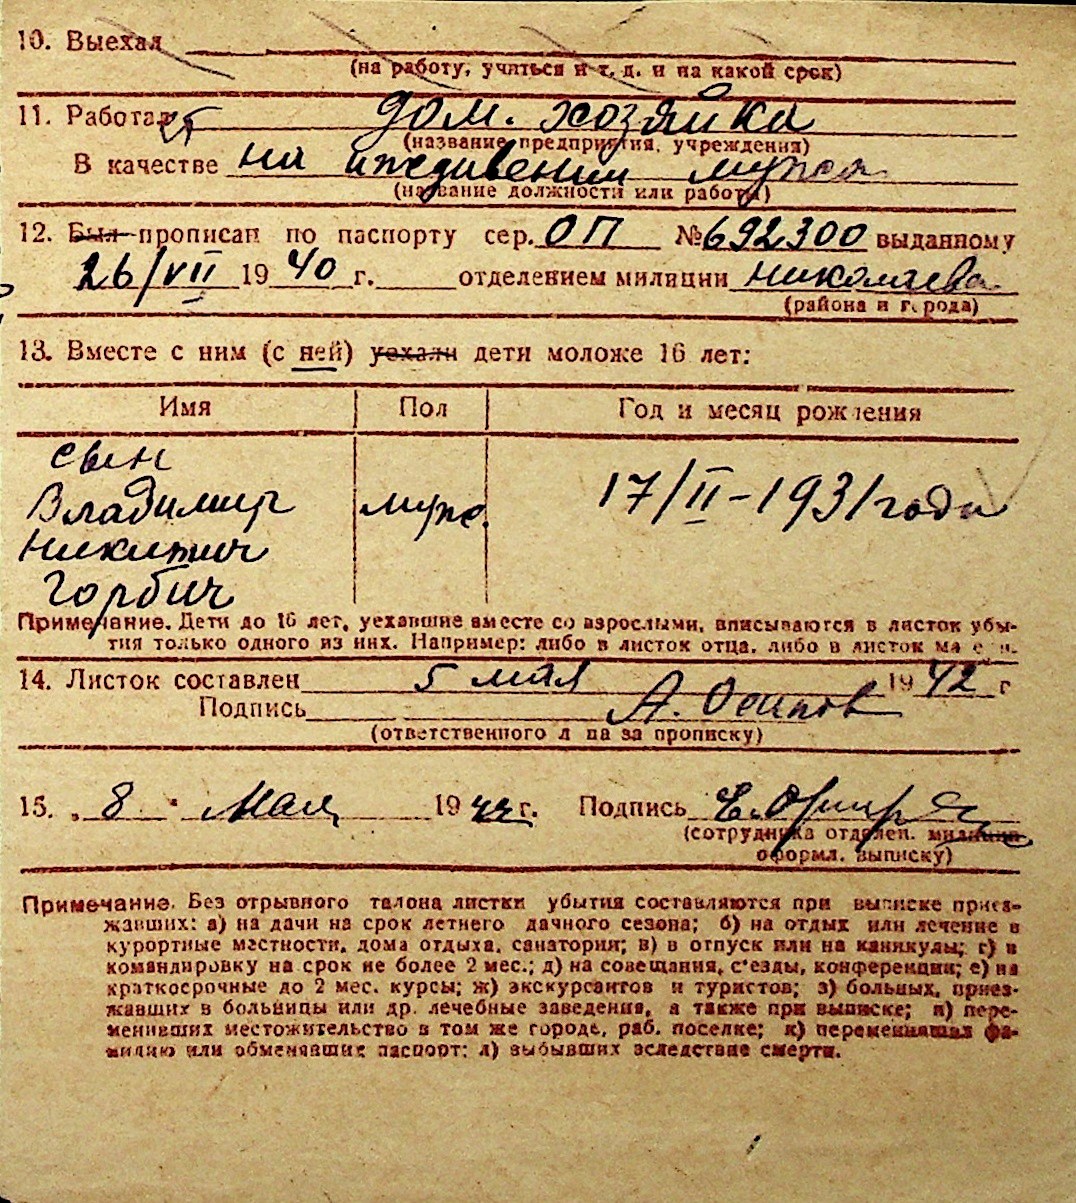 10. Выехал
(на работу, учиться и т. д. и на какой срок)
11. Работает дом. хозяйка
(название предприятия, учреждения)
В качестве на иждивении мужа
(название должности или работы)
12. Был прописан по паспорту сер. ОП №692300 выданному
26/VII 1940 г. отделением милиции Николаева
(района и города)
13. Вместе с ним (с ней) уехали дети моложе 16 лет:
Имя Пол Год и месяц рождения
сын
Владимир муж. 17/II-1931 года
Никитич
Горбич
Примечание. Дети до 16 лет, уехавшие вместе со взрослыми, вписываются в листок убы-
тия только одного из них. Например: либо в листок отца, либо в листок ма е и.
14. Листок составлен 5 мая 1942 г
Подпись А. Осипов
(ответственного л ца за прописку)
15. „8“ Мая 1942 г. Подпись
(сотрудника отделен. милиции
оформл. выписку)
Примечание. Без отрывного талона листки убытия составляются при выписке приез-
жавших: а) на дачи на срок летнего дачного сезона; б) на отдых или лечение в
курортные местности, дома отдыха, санатории; в) в отпуск или на каникулы; г) в
командировку на срок не более 2 мес.; д) на совещания, с'езды, конференции; е) на
краткосрочные до 2 мес. курсы; ж) экскурсантов и туристов; з) больных, приез-
жавших в больницы или др. лечебные заведения, а также при выписке; и) пере-
менивших местожительство в том же городе, раб. поселке; к) переменивших фа-
милию или обменявших паспорт; л) выбывших вследствие смерти.